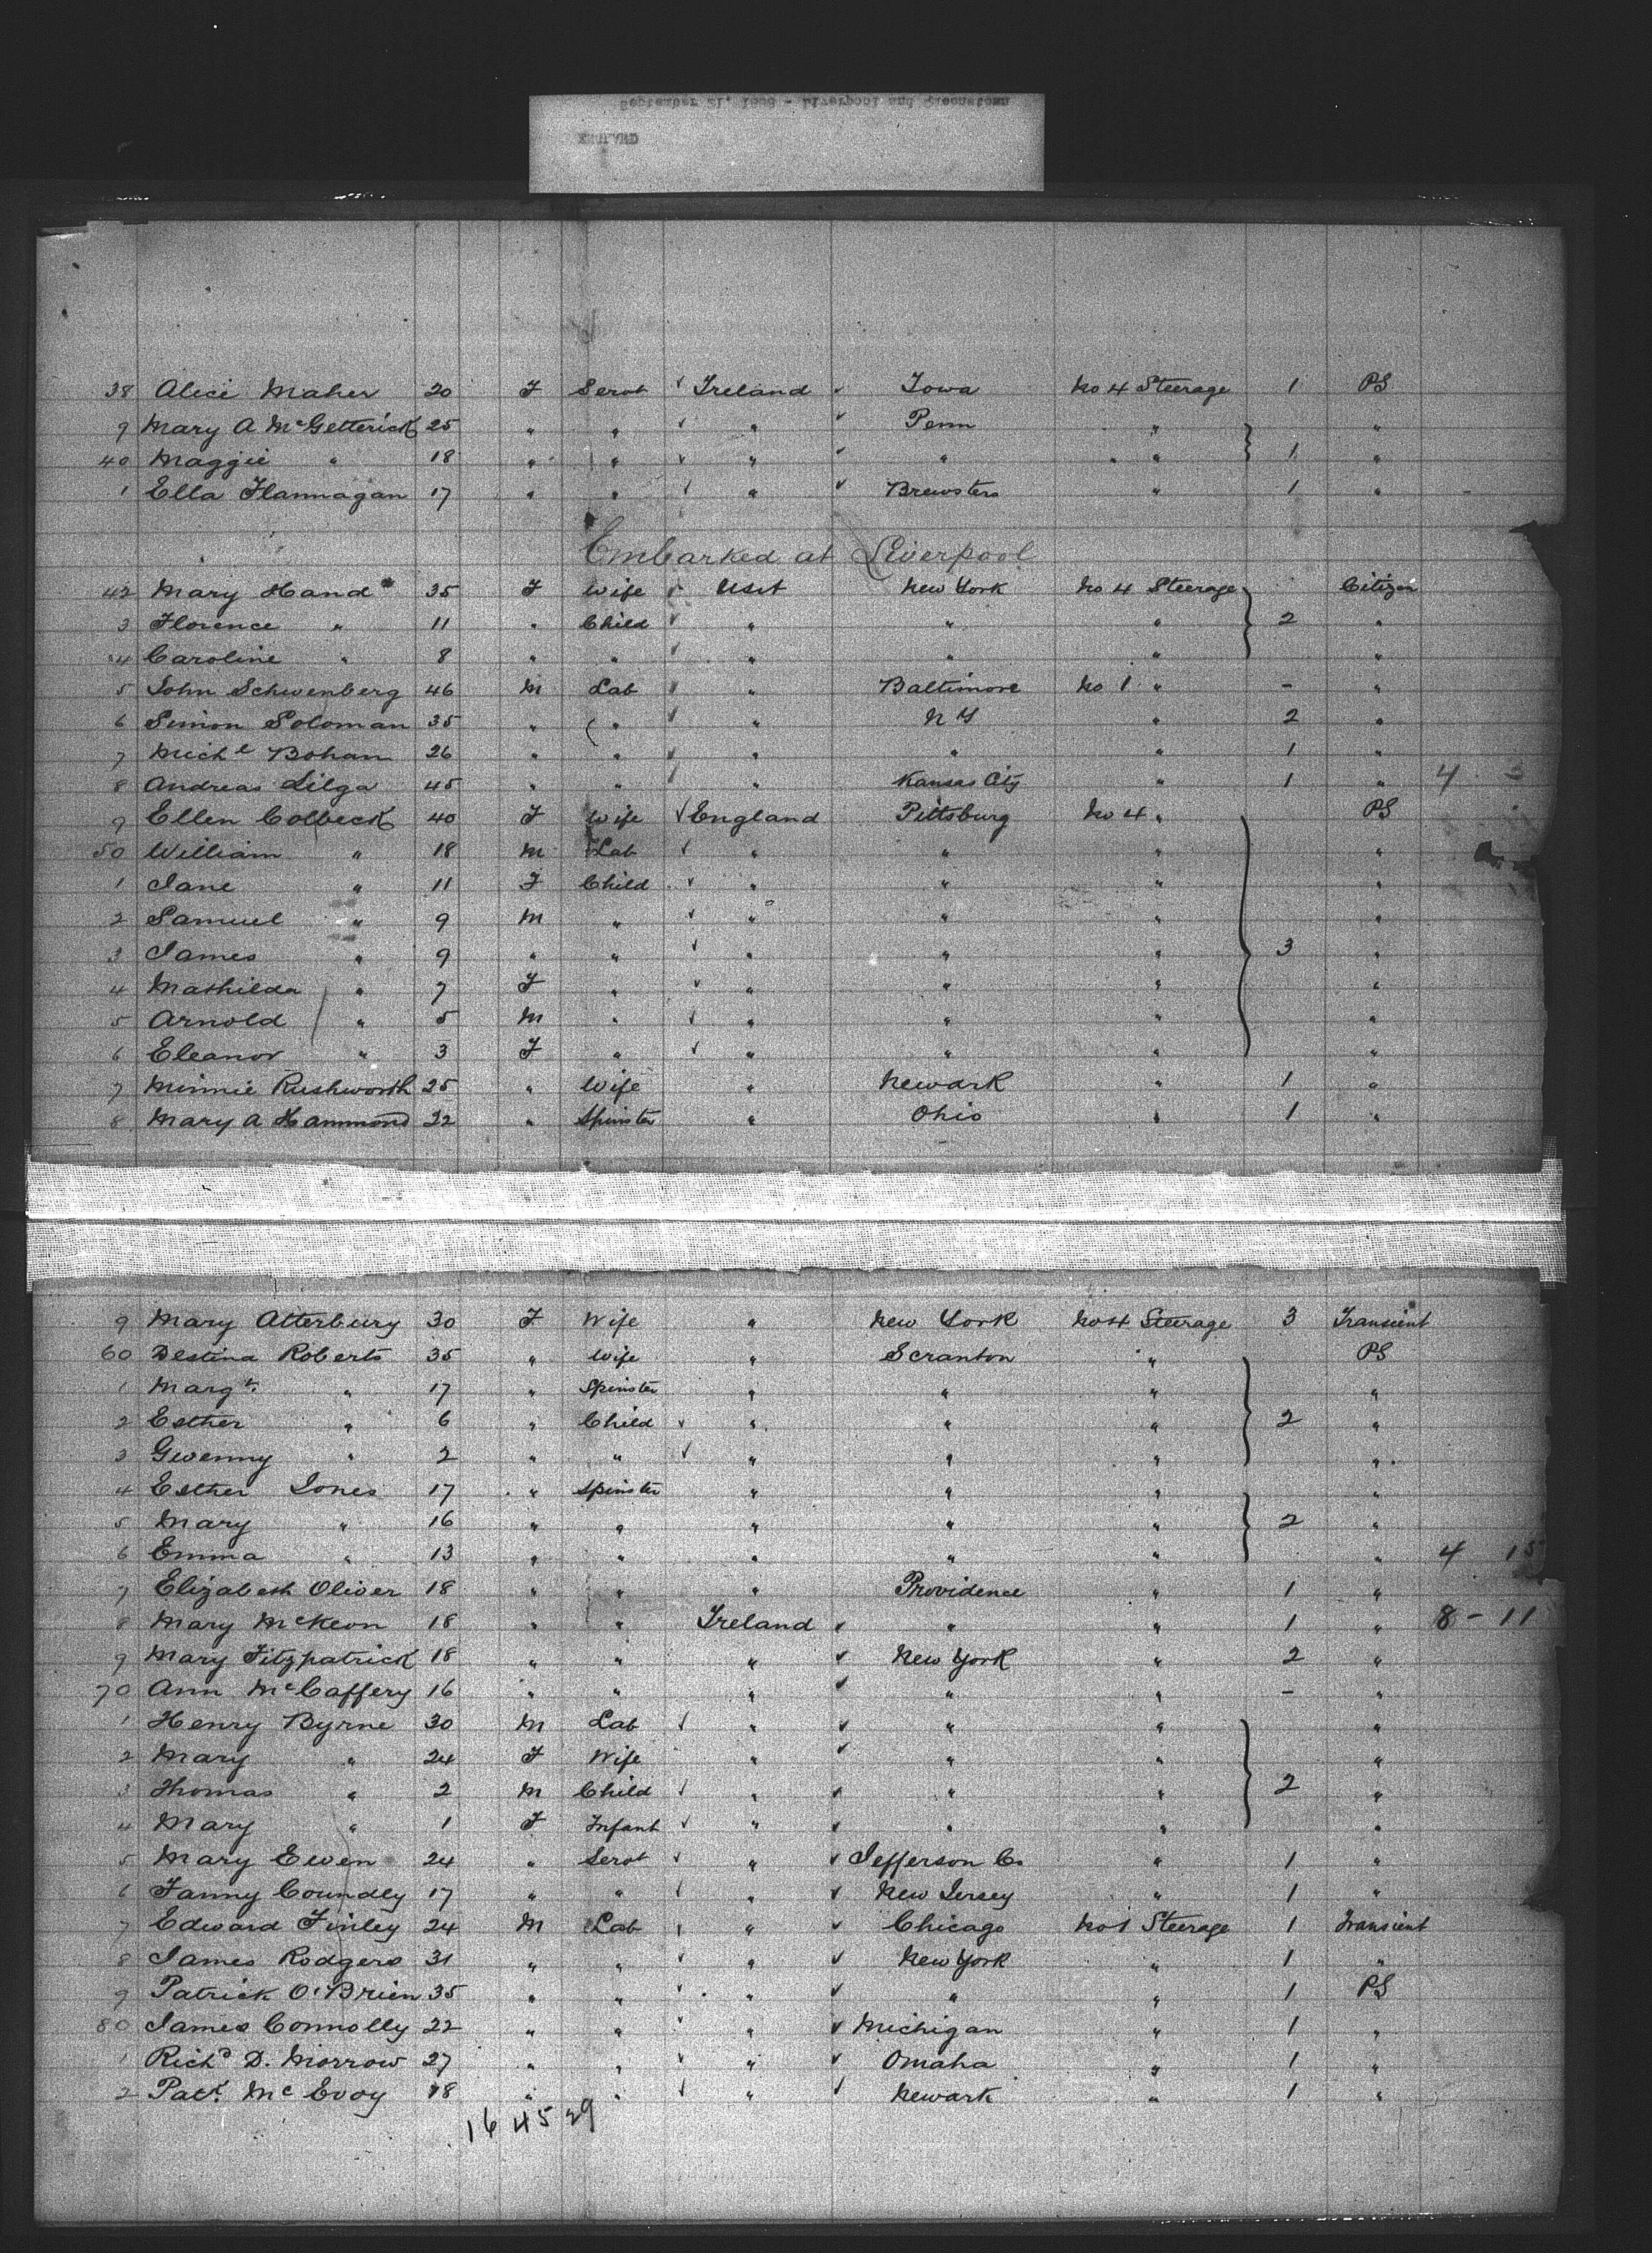 September 21, 1896 - Liverpool and Queenstown
ENGLAND
38 Alice Maher 20 F Servt Ireland Iowa No 4 Steerage 1 PS
9 Mary A McGetterick 25 " " " Penn " "
40 Maggie " 18 " " " " " 1 "
1 Ella Flannagan 17 " " " Brewsters " 1 "
Embarked at Liverpool
42 Mary Hand 35 F Wife USA New York No 4 Steerage Citizen
3 Florence " 11 " Child " " " 2 "
4 Caroline " 8 " " " " " "
5 John Schwenberg 46 M Lab " Baltimore No 1 " - "
6 Simon Soloman 35 " " " N Y " 2 "
7 Michl Bohan 26 " " " " " 1 "
8 Andreas Lilga 45 " " " Kansas City " 1 " 4
9 Ellen Colbeck 40 F Wife England Pittsburg No 4 " PS
50 William " 18 M Lab " " " "
1 Jane " 11 F Child " " " "
2 Samuel " 9 M " " " " "
3 James " 9 " " " " " 3 "
4 Mathilda " 7 F " " " " "
5 Arnold " 5 M " " " " "
6 Eleanor " 3 F " " " " "
7 Minnie Rushworth 25 " Wife " Newark " 1 "
8 Mary A Hammond 22 " Spinster " Ohio " 1 "
9 Mary Atterbury 30 F Wife " New York No 4 Steerage 3 Transient
60 Destina Roberts 35 " Wife " Scranton " PS
1 Margt. " 17 " Spinster " " " "
2 Esther " 6 " Child " " " 2 "
3 Gwenny " 2 " " " " " "
4 Esther Jones 17 " Spinster " " " "
5 Mary " 16 " " " " " 2 "
6 Emma " 13 " " " " " " 4 15
7 Elizabeth Oliver 18 " " " Providence " 1 "
8 Mary McKeon 18 " " Ireland " " 1 " 8 - 11
9 Mary Fitzpatrick 18 " " " New York " 2 "
70 Ann McCaffery 16 " " " " " - "
1 Henry Byrne 30 M Lab " " " "
2 Mary " 24 F Wife " " " "
3 Thomas " 2 M Child " " " 2 "
4 Mary " 1 F Infant " " " "
5 Mary Ewen 24 " Servt " Jefferson Co " 1 "
6 Fanny Coundley 17 " " " New Jersey " 1 "
7 Edward Finley 24 M Lab " Chicago No 1 Steerage 1 Transient
8 James Rodgers 31 " " " New York " 1 "
9 Patrick O'Brien 35 " " " " " 1 PS
80 James Connolly 22 " " " Michigan " 1 "
1 Richd D. Morrow 27 " " " Omaha " 1 "
2 Patk. McEvoy 18 " " " Newark " 1 "
16 45 29